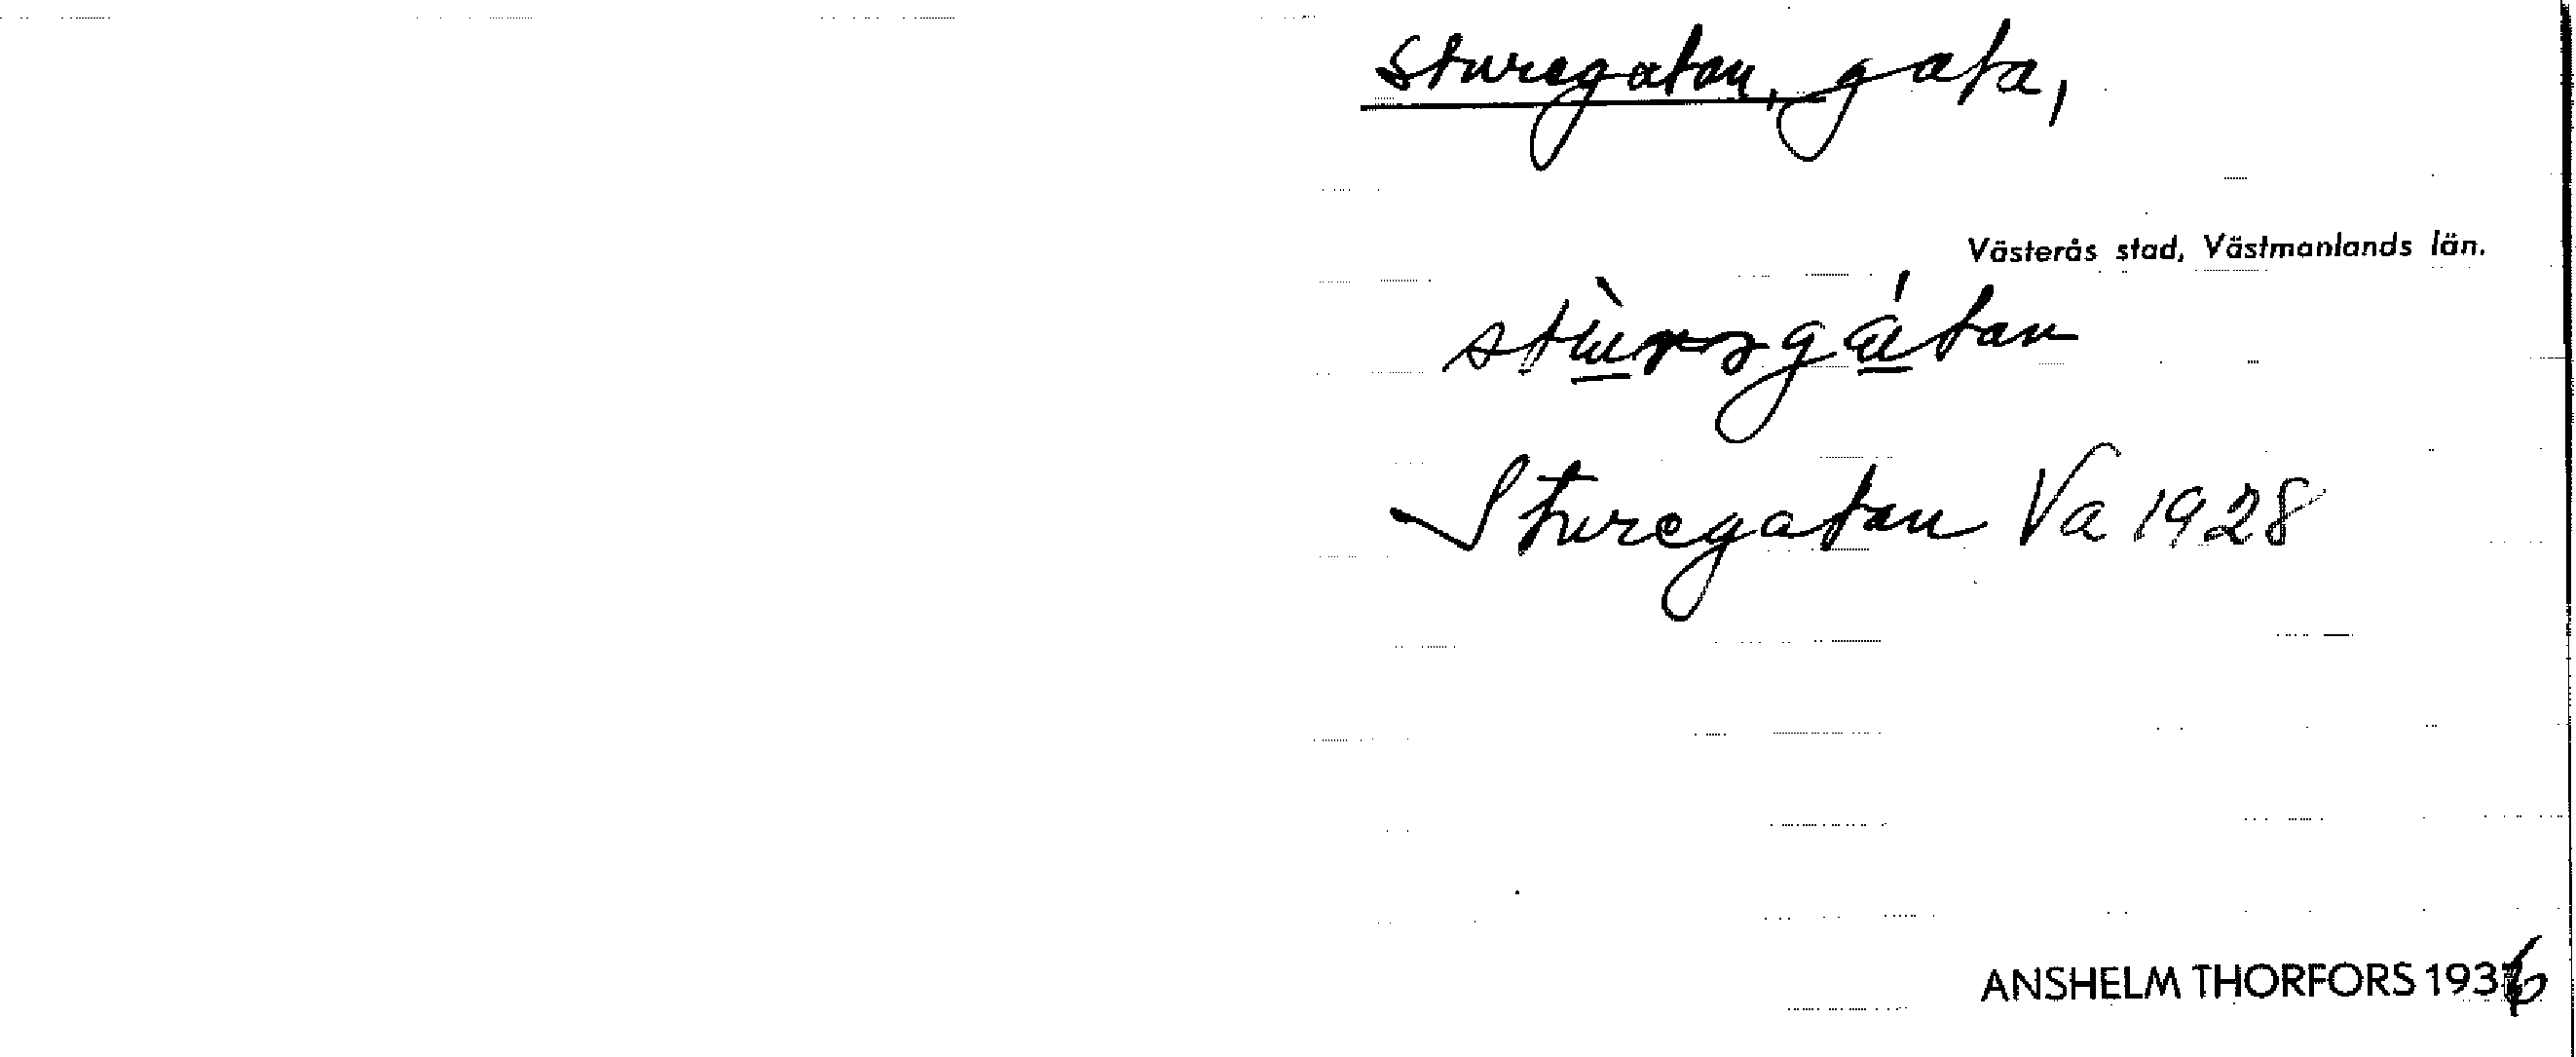 Sturegatan, gata,
Västerås stad, Västmanlands län.
Sturegatan Va 1928
ANSHELM THORFORS 1936